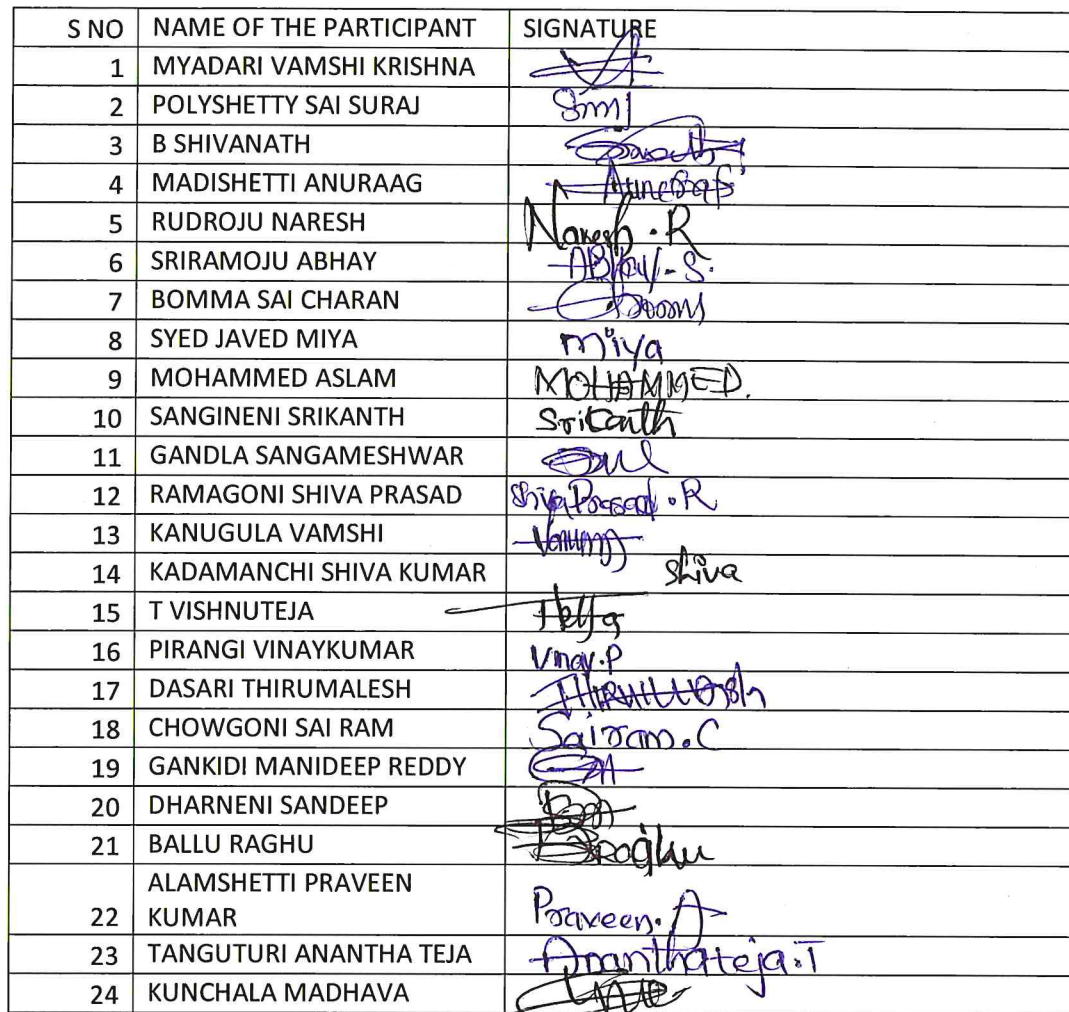 S NO NAME OF THE PARTICIPANT SIGNATURE
1 MYADARI VAMSHI KRISHNA
2 POLYSHETTY SAI SURAJ
3 B SHIVANATH
4 MADISHETTI ANURAAG
5 RUDROJU NARESH Naresh.R
6 SRIRAMOJU ABHAY Abhay-S.
7 BOMMA SAI CHARAN
8 SYED JAVED MIYA miya
9 MOHAMMED ASLAM MOHAMMED.
10 SANGINENI SRIKANTH Srikanth
11 GANDLA SANGAMESHWAR
12 RAMAGONI SHIVA PRASAD Shiva Prasad.R
13 KANUGULA VAMSHI
14 KADAMANCHI SHIVA KUMAR Shiva
15 T VISHNUTEJA
16 PIRANGI VINAYKUMAR Vinay.P
17 DASARI THIRUMALESH
18 CHOWGONI SAI RAM Sairam.C
19 GANKIDI MANIDEEP REDDY
20 DHARNENI SANDEEP
21 BALLU RAGHU B Raghu
ALAMSHETTI PRAVEEN
22 KUMAR Praveen.A
23 TANGUTURI ANANTHA TEJA Ananthateja.T
24 KUNCHALA MADHAVA